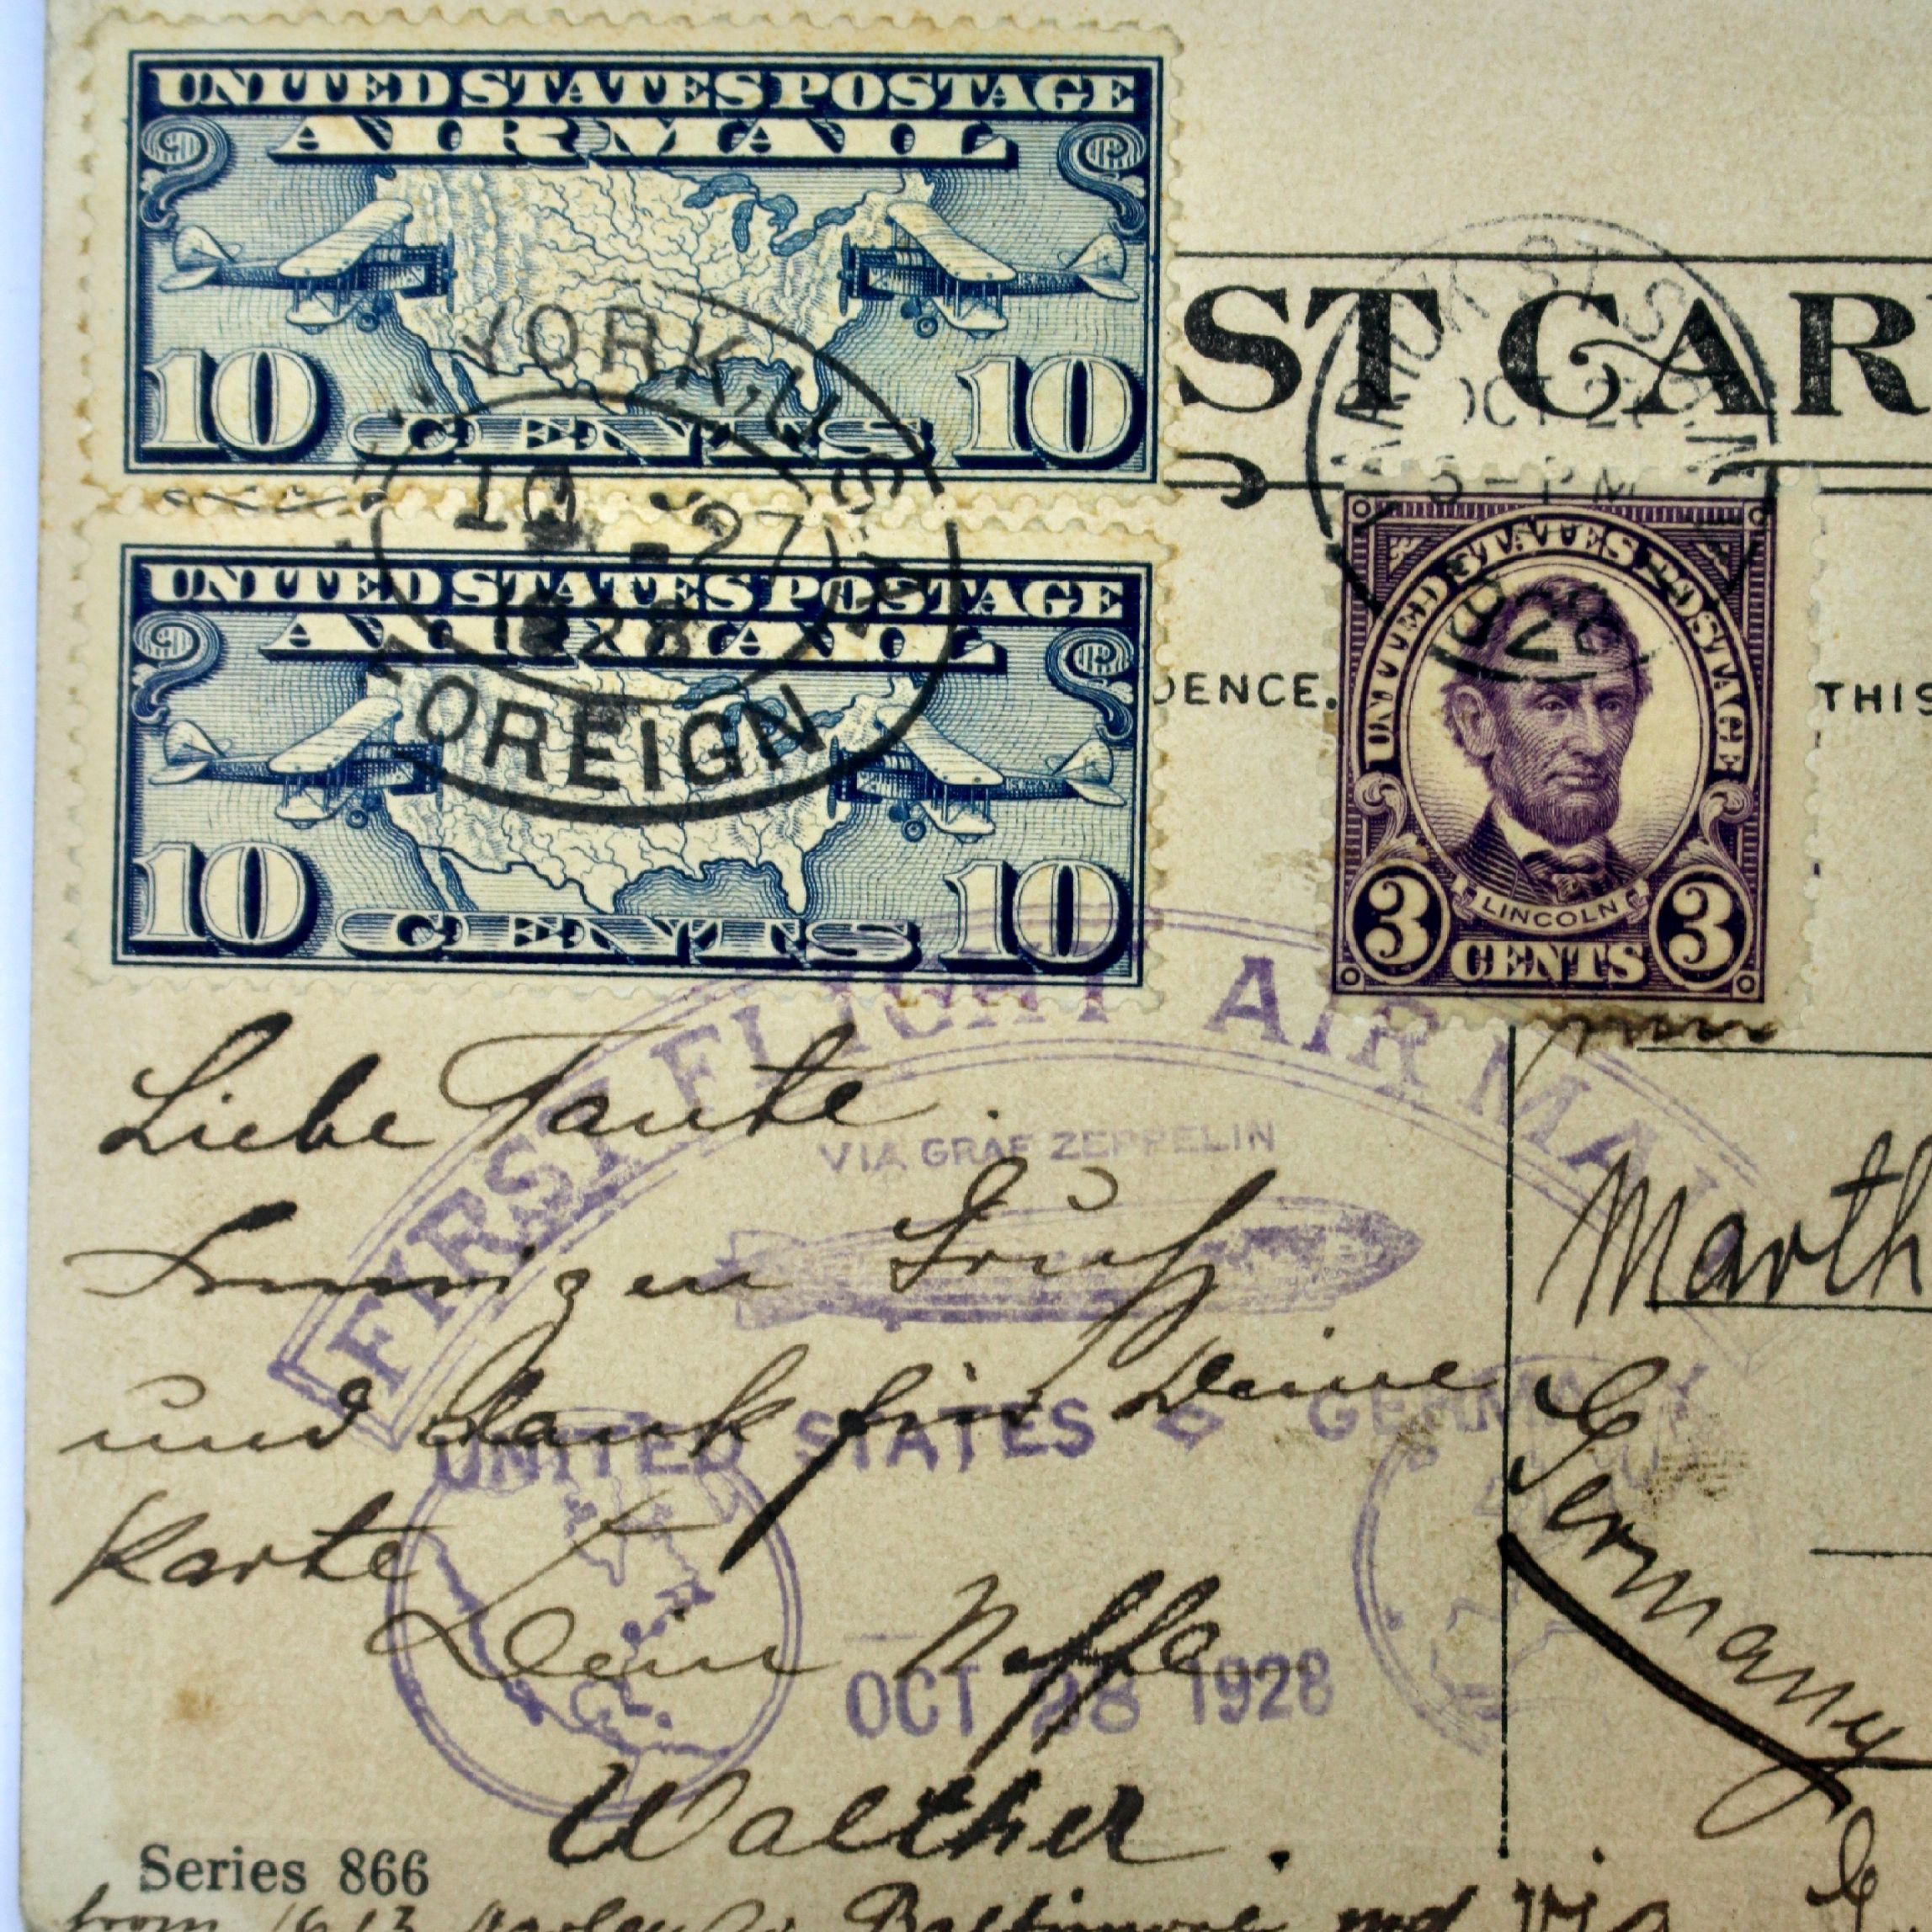 UNITED STATES POSTAGE
AIR MAIL
10 CENTS 10
YORK, U.S.A.
10 -27
1928
FOREIGN
UNITED STATES POSTAGE
AIR MAIL
10 CENTS 10
ST CAR
VARICK ST. STA. N.Y.
OCT 2
5-PM
1928
UNITED STATES POSTAGE
LINCOLN
3 CENTS 3
DENCE.
THIS
FIRST FLIGHT AIR MAIL
VIA GRAF ZEPPELIN
UNITED STATES GERMANY
OCT 28 1928
Liebe Tante.
Innigen Gruß
und Dank für Deine
Karte
Dein Neffe
Walther.
Marth
Germany
Series 866
from 1613 Baltimore md